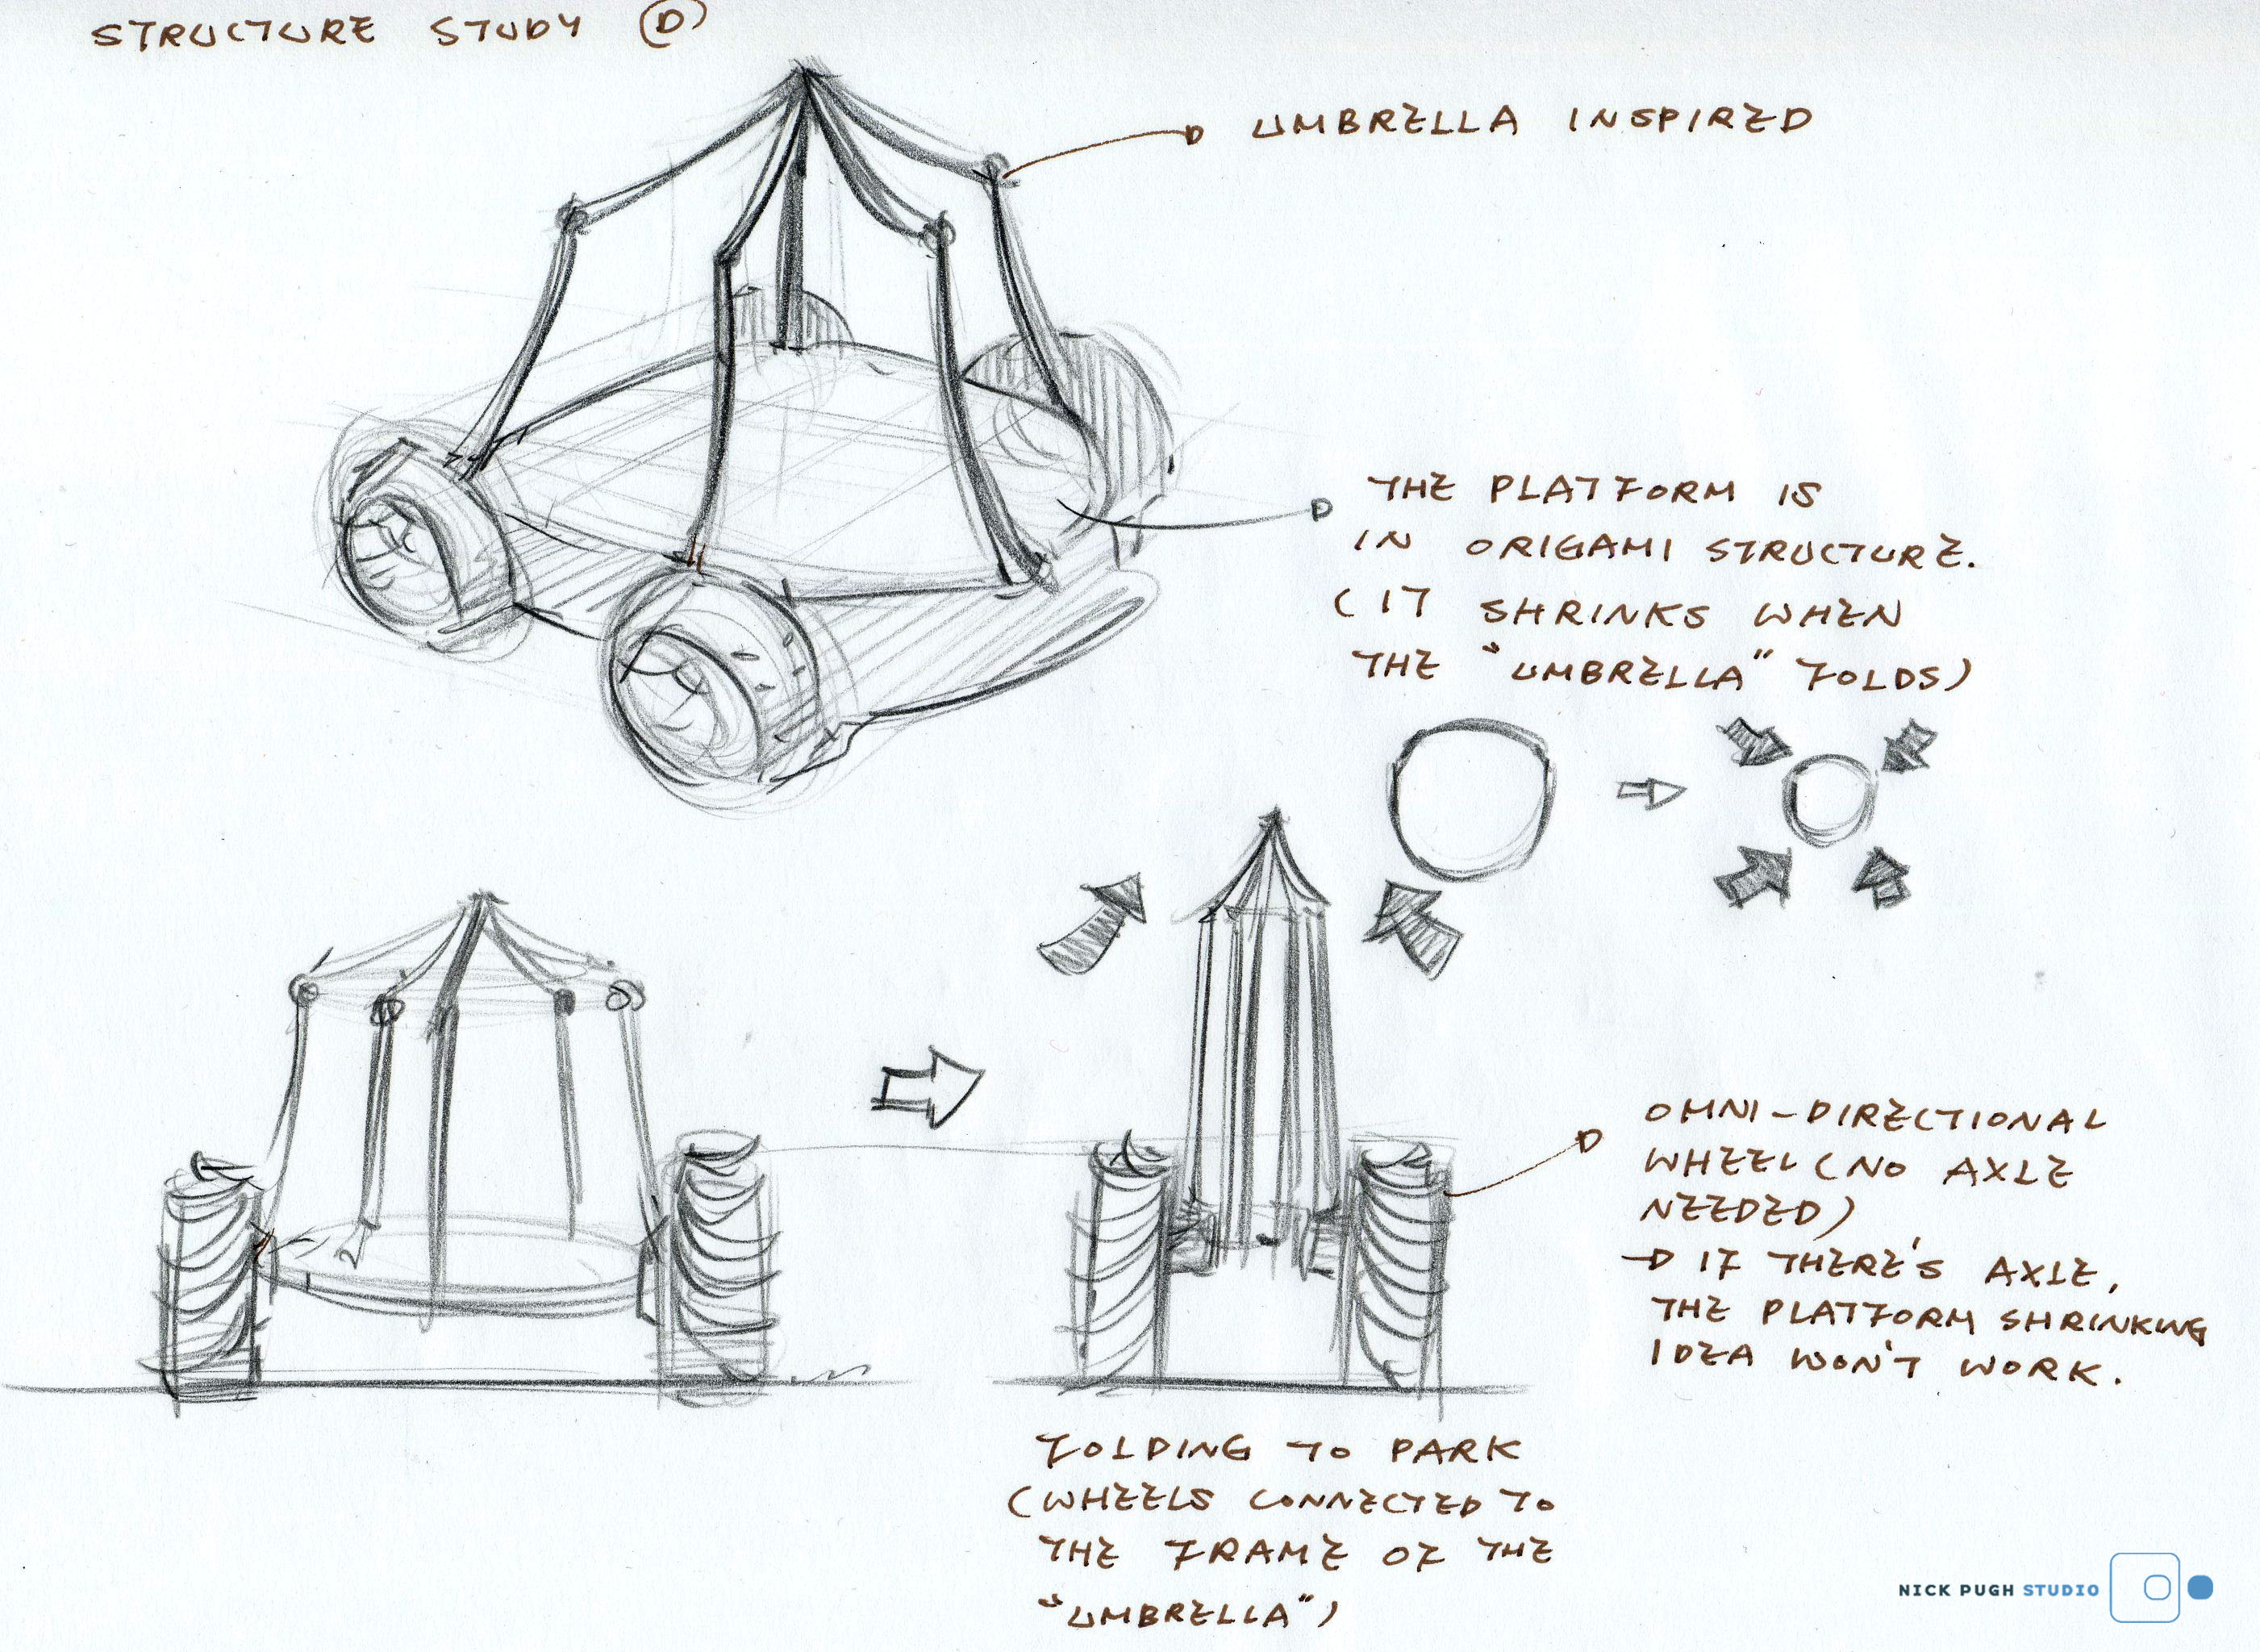 STRUCTURE STUDY D
UMBRELLA INSPIRED
THE PLATFORM IS
IN ORIGAMI STRUCTURE.
(IT SHRINKS WHEN
THE "UMBRELLA" FOLDS)
OMNI-DIRECTIONAL
WHEEL (NO AXLE
NEEDED)
→ IF THERE'S AXLE,
THE PLATFORM SHRINKING
IDEA WON'T WORK.
FOLDING TO PARK
(WHEELS CONNECTED TO
THE FRAME OF THE
"UMBRELLA")
NICK PUGH STUDIO